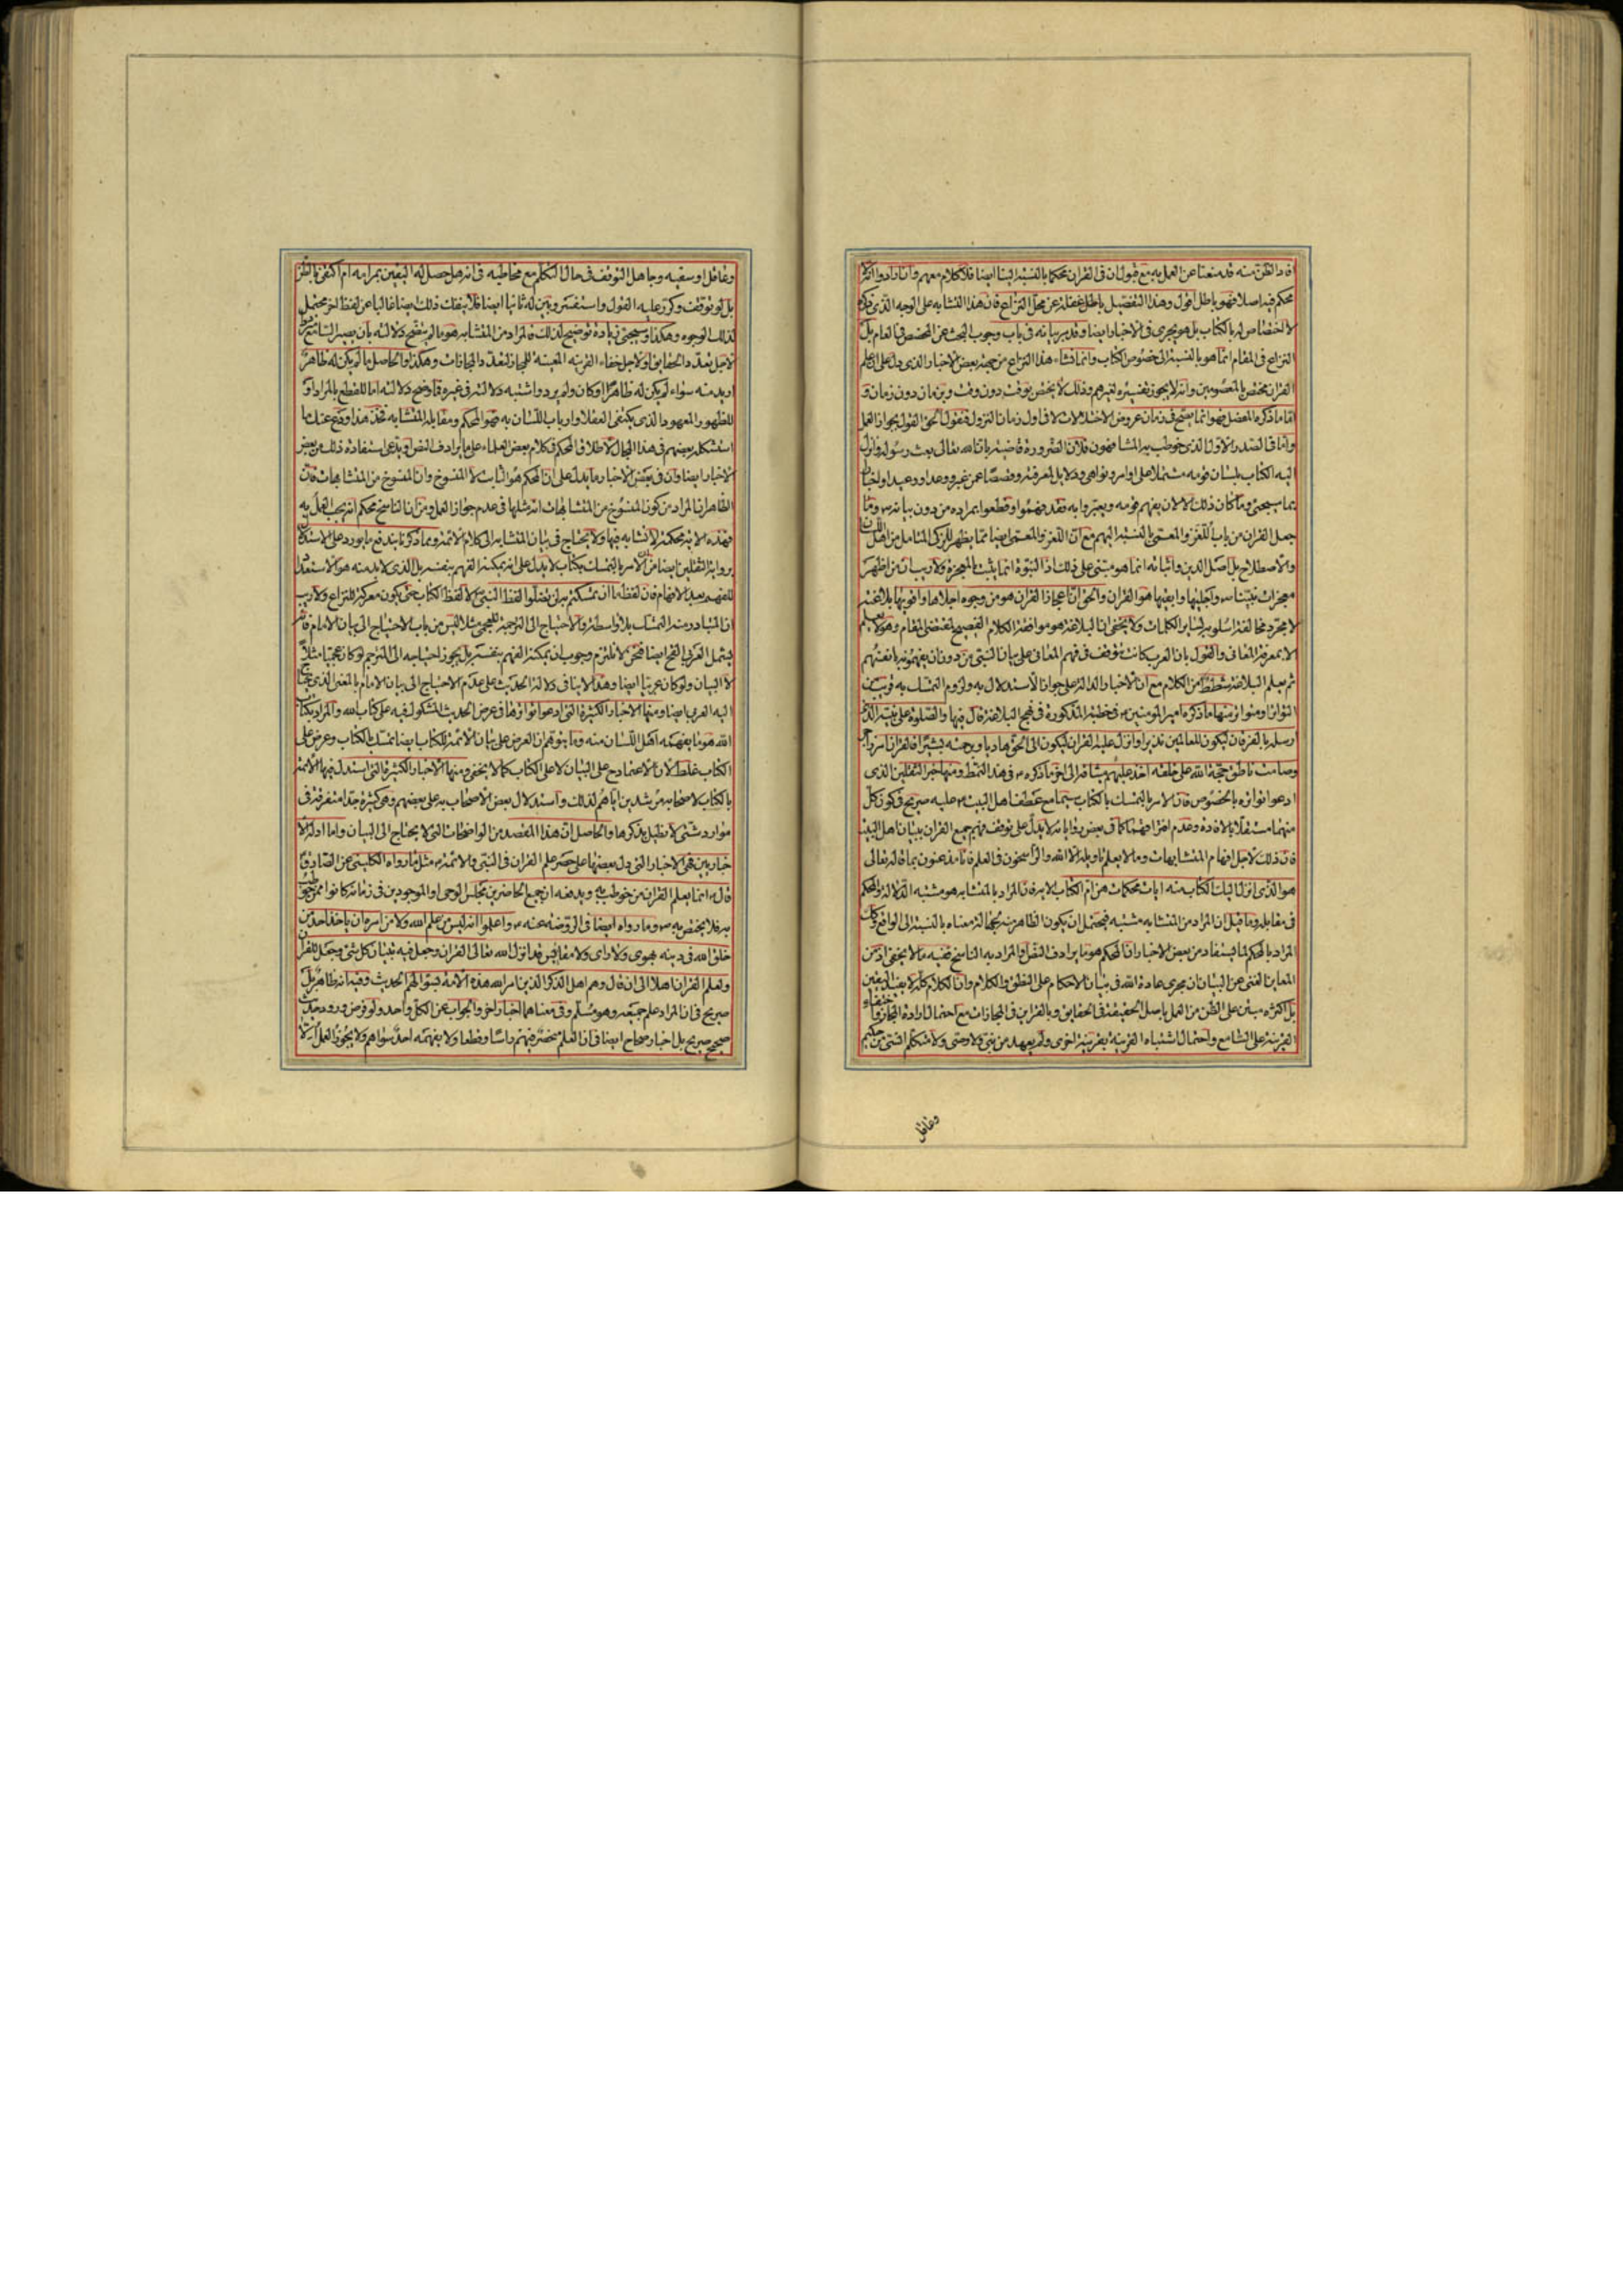 افاد الظن منه قد منعنا عن العمل به مع قبول ان فى القران محكما بالنسبة الينا ايضا فلا كلام معهم وان ارادوا انه لا
محكم فيه اصلا فهو باطل اقول وهذا التفصيل باطل غفلة عن محل النزاع فان هذا التشابه على الوجه الذى ذكره
لا اختصاص له بالكتاب بل هو يجرى فى الاخبار ايضا وقد مر بيانه فى باب وجوب البحث عن المخصص فى العام بل
النزاع فى المقام انما هو بالنسبة الى خصوص الكتاب وانما نشاء هذا النزاع من جهة بعض الاخبار الذى دل على ان علم
القران مختص بالمعصومين وانه لا يجوز تفسيره لغيرهم وذلك لا يختص بوقت دون وقت وبزمان دون زمان و
اما ما ذكره المفصل فهو انما يصح فى زمان عروض الاختلالات لا فى اول زمان النزول فنقول الحق القول بجواز العمل
واما فى الصدر الاول الذى خوطب به المشافهون فلان الضرورة قاضية بان الله تعالى بعث رسوله وانزل
اليه الكتاب بلسان قومه مشتملا على اوامر ونواهى ودلايل لمعرفته وقصصا عمن غبر ووعدا ووعيدا واخبارا
بما سيجىء وما كان ذلك الا لان يفهم قومه ويعتبروا به وقد فهموا وقطعوا بمراده من دون بيانه ص وما
جعل القران من باب اللغز والمعمى بالنسبة اليهم مع ان اللغز والمعمى ايضا مما يظهر للذكى المتامل من اهل اللسان
والاصطلاح بل اصل الدين واثباته انما هو مبتنى على ذلك اذ النبوة انما يثبت بالمعجزة ولا ريب ان من اظهر
معجزات نبينا ص واجلها وابقيها هو القران والحق ان اعجاز القران هو من وجوه اجلاها واقويها بلاغته
لا مجرد مخالفة اسلوبه لساير الكلمات ولا يخفى ان البلاغة هو موافقة الكلام الفصيح لمقتضى المقام وهو لا يعلم
الا بمعرفة المعانى والقول بان العرب كانت يتوقف فى فهم المعانى على بيان النبى من دون ان يفهموه بانفسهم
ثم يعلم البلاغة شطط من الكلام مع ان الاخبار الدالة على جواز الاستدلال به ولزوم التمسك به قريب من
التواتر او متواتر منها ما ذكره امير المؤمنين ع فى خطبته المذكورة فى نهج البلاغة قال فيها والصلوة على نبيه الذى
ارسله بالفرقان ليكون للعالمين نذيرا وانزل عليه القران ليكون الى الحق هاديا وبرحمته بشيرا فالقران امر زاجر
وصامت ناطق حجة الله على خلقه اخذ عليهم ميثاقه الى اخر ما ذكره ع فى هذا النمط ومنها خبر الثقلين الذى
ادعوا تواتره بالخصوص فان الامر بالتمسك بالكتاب سيما مع عطف اهل البيت ع عليه صريح فى كون كل
منهما مستقلا بالافادة وعدم افتراقهما كما فى بعض رواياته لا يدل على توقف فهم جميع القران ببيان اهل البيت
فان ذلك لاجل افهام المتشابهات وما لا يعلم تاويله الا الله والراسخون فى العلم فانا مذعنون بما قاله تعالى
هو الذى انزل اليك الكتاب منه ايات محكمات هن ام الكتاب الاية فان المراد بالمتشابه هو مشتبه الدلالة والمحكم
فى مقابله وما قيل ان المراد من المتشابه مشتبه فيحتمل ان يكون الظاهر منه لجهالة معناه بالنسبة الى الواقع وكك
المراد بالمحكم لما يستفاد من بعض الاخبار ان المحكم هو ما يرادف النص والمراد به الناسخ ففيه ما لا يخفى اذ من
المعاين الغنى عن البيان ان يجرى عادة الله فى بيان الاحكام على النطق والكلام وان الكلام كله لا يفيد اليقين
بل اكثره مبتن على الظن من العمل باصل الحقيقة فى الحقايق وبالقراين فى المجازات مع احتمال ارادة المجاز واختفاء
القرينة على السامع واحتمال اشتباه القرينة بقرينة اخرى ولم يعهد من نبى ولا وصى ولا متكلم انسى من حكيم
وغافل
وغافل او سفيه وجاهل التوقف فى حال التكلم مع مخاطبيه فى انه هل حصل له اليقين بمرامه ام اكتفى بالظن
بل لو توقف وكرر عليه القول واستفسر وبين له ثانيا ايضا فلا ينفك ذلك ايضا غالبا عن لفظ اخر محتمل
لذلك الوجوه وهكذا وسيجىء زيادة توضيح لذلك فالمراد من المتشابه هو ما لم يتضح دلالته بان يصير السامع مترددا
لاجل تعدد الحقايق او لاجل خفاء القرينة المعينة للمجاز لتعدد المجازات وهكذا والحاصل ما لم يكن له ظاهر
اريد منه سواء لم يكن له ظاهر او كان ولم يرد واشتبه دلالته فى غيره فما وضح دلالته اما للقطع بالمراد او
للظهور المعهود الذى يكتفى العقلاء وارباب اللسان به فهو المحكم ومقابله المتشابه فخذ هذا ودع عنك ما
استشكله بعضهم فى هذا المجال لاطلاق المحكم فى كلام بعض العلماء على ما يرادف النص ويدعى استفادة ذلك من بعض
الاخبار ايضا وان فى بعض الاخبار ما يدل على ان المحكم هو الثابت لا المنسوخ وان المنسوخ من المتشابهات فان
الظاهر ان المراد من كون المنسوخ من المتشابهات انه مثلها فى عدم جواز العمل ومن ان الناسخ محكم انه يجب العمل به
فهذه الاية محكمة لا تشابه فيها ولا يحتاج فى بيان المتشابه الى كلام الائمة ومما ذكرنا يندفع ما يورد على الاستدلال
برواية الثقلين ايضا من ان الامر بالتمسك بكتاب لا يدل على انه يمكنه الفهم بنفسه بل الذى لا بد منه هو الاستعداد
للفهم بعد الافهام فان لفظ ما ان تمسكتم به لن تضلوا لفظ النبى ص لا لفظ الكتاب حتى يكون معركة للنزاع ولا ريب
ان المتبادر منه التمسك بلا واسطة والاحتياج الى الترجمة للعجمى مثلا ليس من باب الاحتياج الى بيان الامام فانه
يشمل العربى القح ايضا فنحن لا نلتزم وجوب ان يمكنه الفهم بنفسه بل يجوز احتياجه الى المترجم لو كان عجميا مثلا
لا البيان ولو كان عربيا ايضا وهذا لا ينافى دلالة الحديث على عدم الاحتياج الى بيان الامام بالمعنى الذى يحتاج
اليه العربى ايضا ومنها الاخبار الكثيرة التى ادعوا تواترها فى عرض الحديث المشكوك فيه على كتاب الله والمراد بكتاب
الله هو ما يفهمه اهل اللسان منه وما يتوهم ان العرض على بيان الائمة للكتاب ايضا تمسك بالكتاب وعرض على
الكتاب غلط لان الاعتماد ح على البيان لا على الكتاب كما لا يخفى ومنها الاخبار الكثيرة التى استدل فيها الائمة
بالكتاب لاصحابه مرشدين اياهم لذلك واستدلال بعض الاصحاب به على بعضهم وهى كثيرة جدا متفرقة فى
موارد شتى لا نطيل بذكرها والحاصل ان هذا المقصد من الواضحات التى لا يحتاج الى البيان واما ادلة الا
خباريين فهى الاخبار التى دل بعضها على حصر علم القران فى النبى والائمة ع مثل ما رواه الكلينى عن الصادق ع
قال ع انما يعلم القران من خوطب به ويدفعه ان جميع الحاضرين مجلس الوحى او الموجودين فى زمانه كانوا ممن خوطب
به فلا يختص به ص وما رواه ايضا فى الروضة عنه ع واعلموا انه ليس من علم الله ولا من امره ان ياخذ احد من
خلق الله فى دينه بهوى ولا راى ولا مقاييس قد انزل الله تعالى القران وجعل فيه تبيان كل شىء وجعل للقران
ولعلم القران اهلا الى ان قال وهم اهل الذكر الذين امر الله هذه الامة بسؤالهم الحديث وفيه انه ظاهر بل
صريح فى ان المراد علم جميعه وهو مسلم وفى معناهما اخبار اخر والجواب عن الكل واحد ولو فرض ورود حديث
صحيح صريح بل اخبار صحاح ايضا فى ان العلم منحصر فيهم راسا وقطعا ولا يفهمه احد سواهم ولا يجوز العمل الا